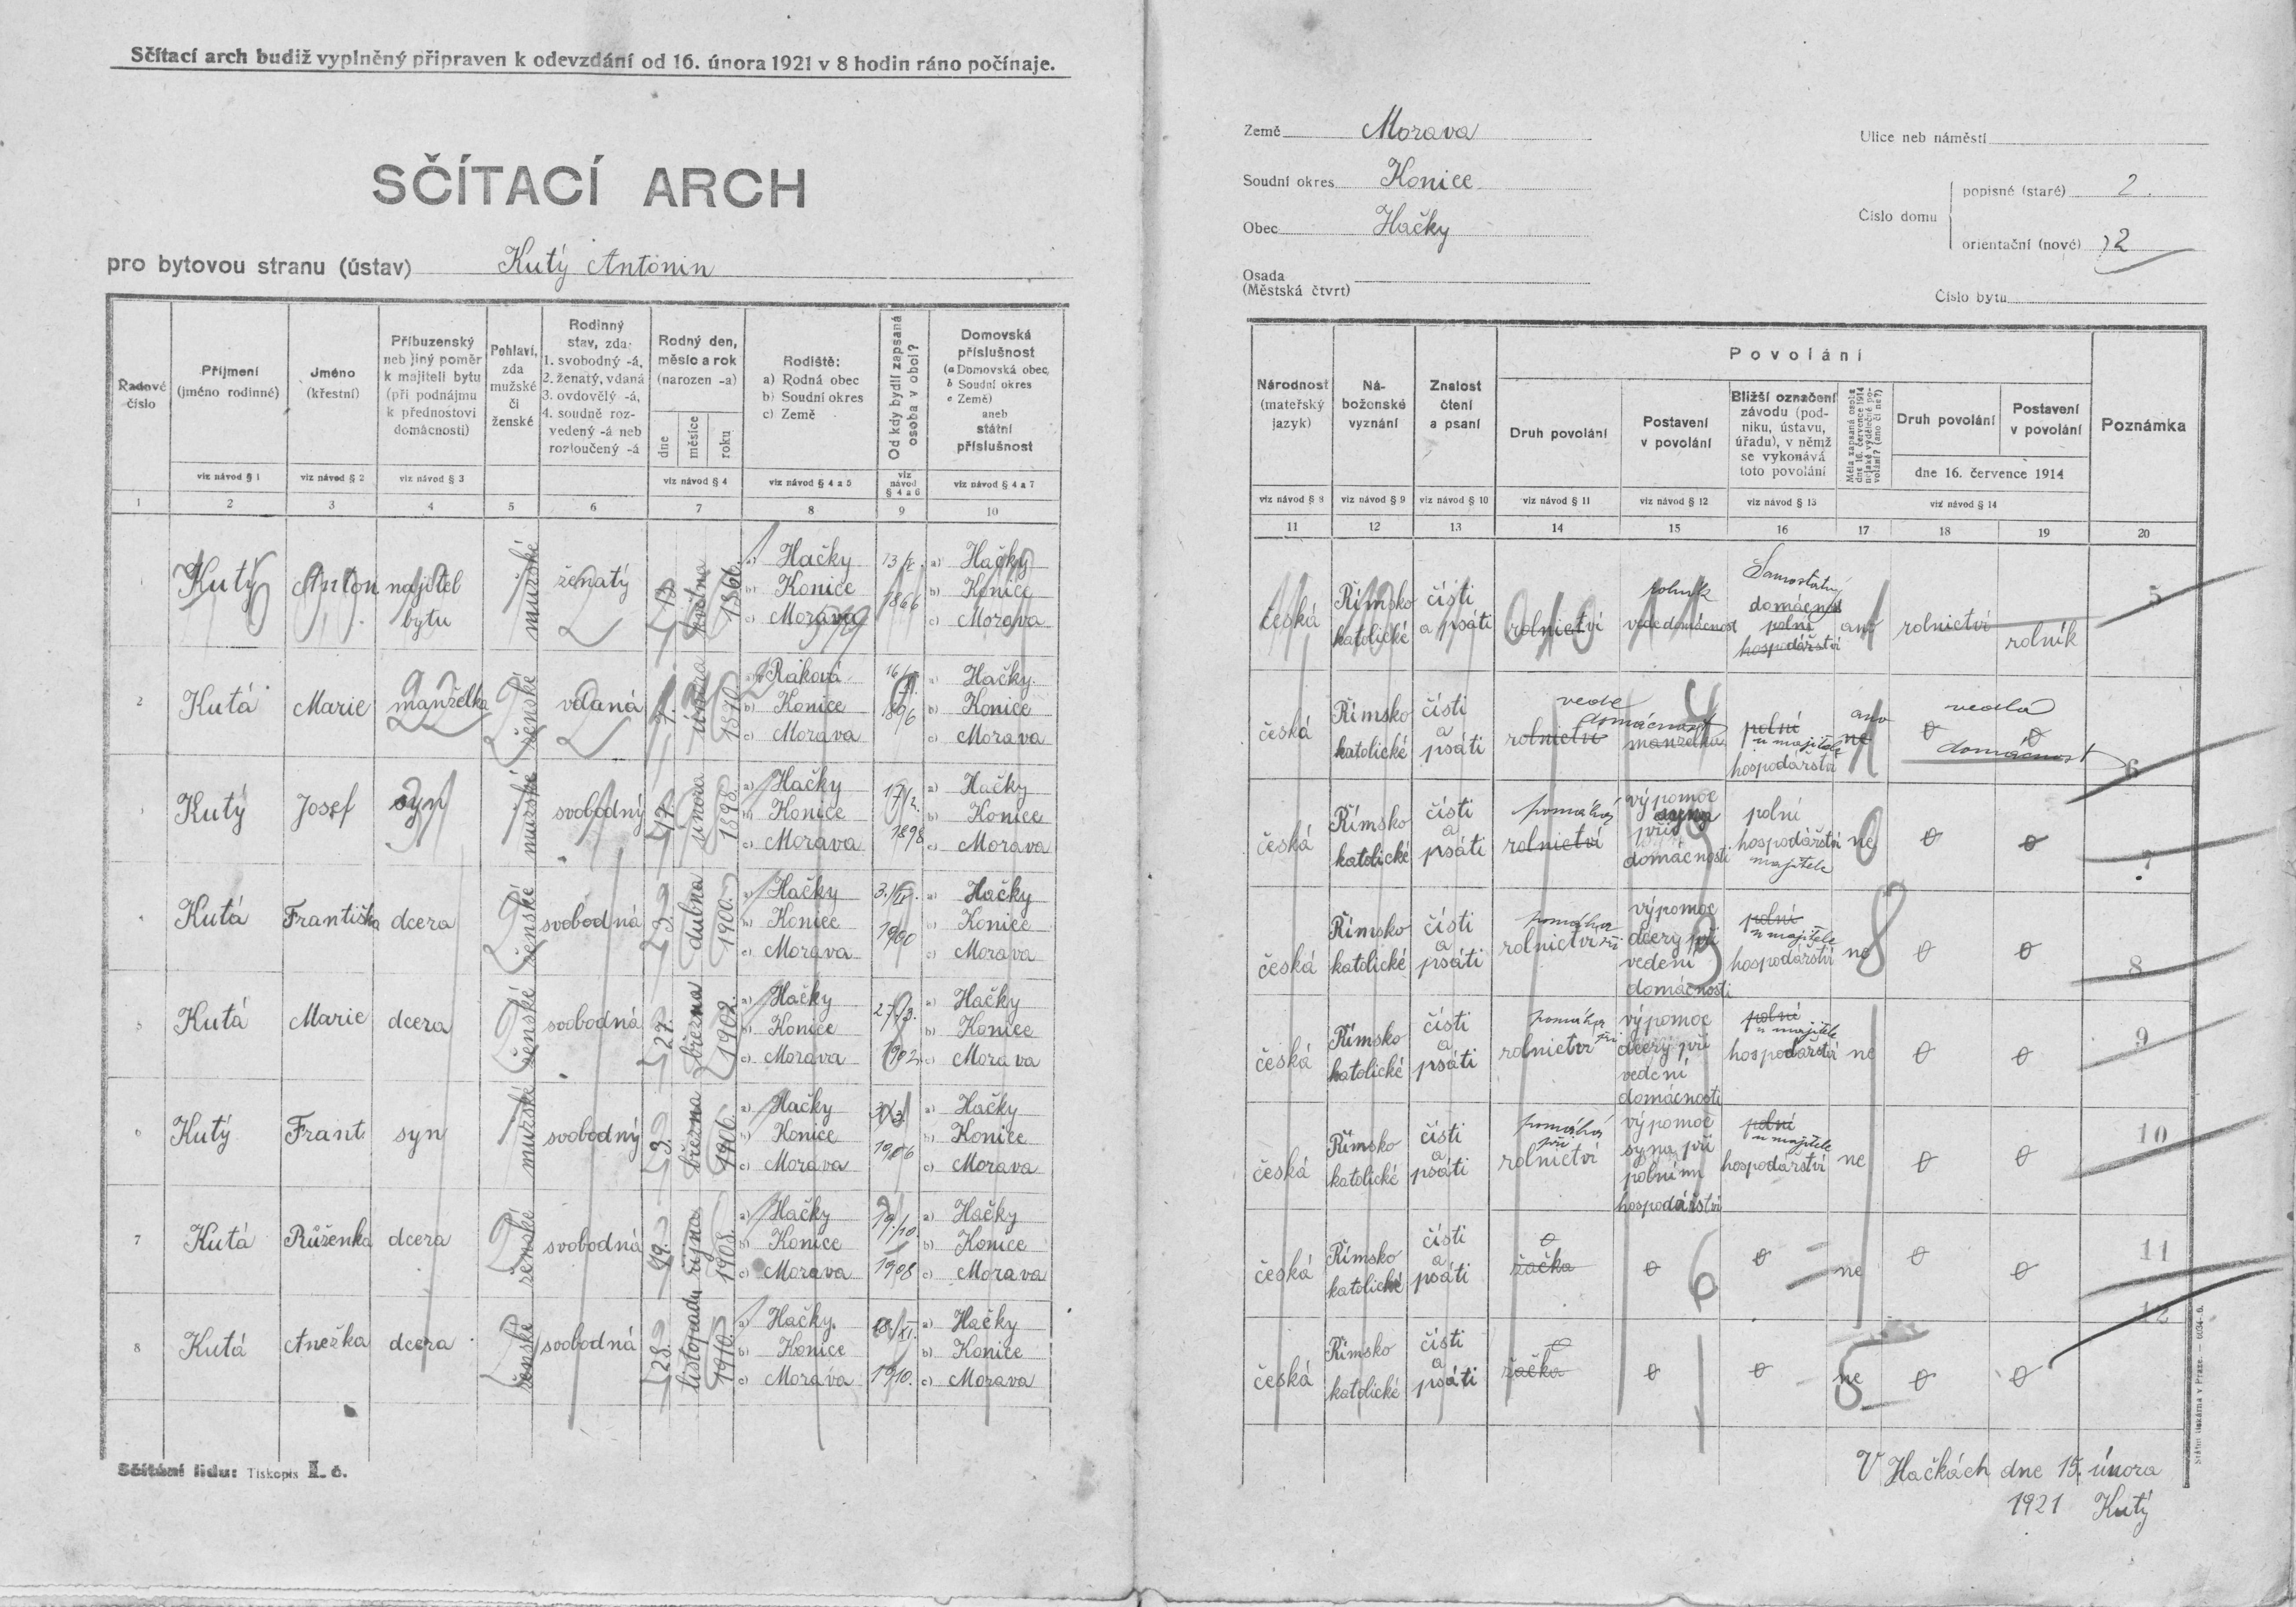 Sčítací arch budiž vyplněný připraven k odevzdání od 16. února 1921 v 8 hodin ráno počínaje.
SČÍTACÍ ARCH
pro bytovou stranu (ústav) Kutý Antonin
Řadové číslo
Příjmení (jméno rodinné)
Jméno (křestní)
Příbuzenský neb jiný poměr k majiteli bytu (při podnájmu k přednostovi domácnosti)
Pohlaví, zda mužské či ženské
Rodinný stav, zda: 1. svobodný -á, 2. ženatý, vdaná 3. ovdovělý -á, 4. soudně rozvedený -á neb rozloučený -á
Rodný den, měsíc a rok (narozen -a)
dne měsíce roku
Rodiště: a) Rodná obec b) Soudní okres c) Země
Od kdy bydlí zapsaná osoba v obci?
Domovská příslušnost (a Domovská obec, b Soudní okres c Země) aneb státní příslušnost
viz návod § 1 viz návod § 2 viz návod § 3 viz návod § 4 viz návod § 4 a 5 viz návod § 4 a 6 viz návod § 4 a 7
1 2 3 4 5 6 7 8 9 10
Kutý Anton majitel bytu mužské ženatý 13. května 1866. a) Hačky b) Konice c) Morava 1866 a) Hačky b) Konice c) Morava
2 Kutá Marie manželka ženské vdaná 7. února 1870. Raková b) Konice c) Morava a) Hačky. b) Konice c) Morava
Kutý Josef syn mužské svobodný 17. února 1898. a) Hačky b) Konice c) Morava 17/2. 1898 a) Hačky b) Konice c) Morava
Kutá Františka dcera ženské svobodná 3. dubna 1900. a) Hačky b) Konice c) Morava 3./IV. 1900 a) Hačky b) Konice c) Morava
5 Kutá Marie dcera ženské svobodná 27. března 1902. a) Hačky b) Konice c) Morava 27./3. 1902 a) Hačky b) Konice c) Morava
6 Kutý Frant. syn mužské svobodný 3. března 1906. a) Hačky b) Konice c) Morava 3/3 1906 a) Hačky b) Konice c) Morava
7 Kutá Růženka dcera ženské svobodná 19. října 1908. a) Hačky b) Konice c) Morava 19./10. 1908 a) Hačky b) Konice c) Morava
8 Kutá Anežka dcera ženské svobodná 28. listopadu 1910. a) Hačky. b) Konice c) Morava 28./XI. 1910. a) Hačky b) Konice c) Morava
Sčítání lidu: Tiskopis II. č.
Země Morava
Soudní okres Konice
Obec Hačky
Osada (Městská čtvrt)
Ulice neb náměstí
Číslo domu
popisné (staré) 2.
orientační (nové) 2
Číslo bytu
Národnost (mateřský jazyk)
Náboženské vyznání
Znalost čtení a psaní
Povolání
Druh povolání
Postavení v povolání
Bližší označení závodu (podniku, ústavu, úřadu), v němž se vykonává toto povolání
Měla zapsaná osoba dne 16. července 1914 nějaké výdělečné povolání? (ano či ne?)
Druh povolání
Postavení v povolání
dne 16. července 1914
Poznámka
viz návod § 8 viz návod § 9 viz návod § 10 viz návod § 11 viz návod § 12 viz návod § 13 viz návod § 14
11 12 13 14 15 16 17 18 19 20
česká Římsko katolické čísti a psáti rolnictví rolník vede domácnost Samostatný domácnost polní hospodářství ano rolnictví rolník 5
česká Římsko katolické čísti a psáti vede domácnost rolnictví manželka polní u majitele hospodářství ano ne vedla domácnost 6
česká Římsko katolické čísti a psáti pomáhá rolnictví výpomoc syna při domácnosti polní hospodářství majitele ne 7
česká Římsko katolické čísti a psáti pomáhá při rolnictví výpomoc dcery při vedení domácnosti polní u majitele hospodářství ne 8
česká Římsko katolické čísti a psáti pomáhá při rolnictví výpomoc dcery při vedení domácnosti polní u majitele hospodářství ne 9
česká Římsko katolické čísti a psáti pomáhá při rolnictví výpomoc syna při polním hospodářství polní u majitele hospodářství ne 10
česká Římsko katolické čísti a psáti žačka ne 11
česká Římsko katolické čísti a psáti žačka ne 12
Státní tiskárna v Praze. — 6034-6.
V Hačkách dne 15. února
1921 Kutý